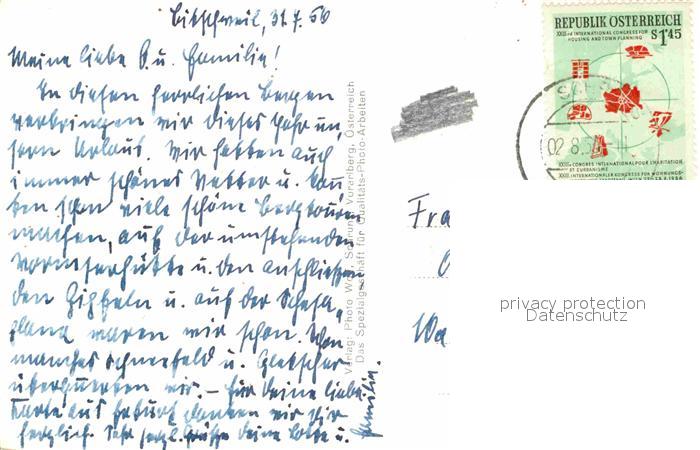 Litschweil, 31.7.56
Meine liebe B. u. Familie!
In diesen herrlichen Bergen
verbringen wir dieses Jahr un
sern Urlaub. Wir hatten auch
immer schönes Wetter u. konn
ten schon viele schöne Bergtouren
machen, auf der umstehenden
Wormserhütte u. den anschließen
den Gipfeln u. auf der Schesa
plana waren wir schon. Von
manches Schneefeld u. Gletscher
überquerten wir. – Für Deine liebe
Karte aus Erfurt danken wir Dir
herzlich. Sehr herzl. Grüße Deine Lotte u.
Familie.
Verlag: Photo Schruns, Vorarlberg, Österreich
Das Spezialgeschäft für Qualitäts-Photo-Arbeiten
REPUBLIK ÖSTERREICH
XXIII rd INTERNATIONAL CONGRESS FOR
HOUSING AND TOWN PLANNING
S 1·45
02.8.56
XXIII e CONGRES INTERNATIONAL POUR L'HABITATION
ET L'URBANISME
XXIII. INTERNATIONALER KONGRESS FÜR WOHNUNGS-
Fra
Wa
privacy protection
Datenschutz